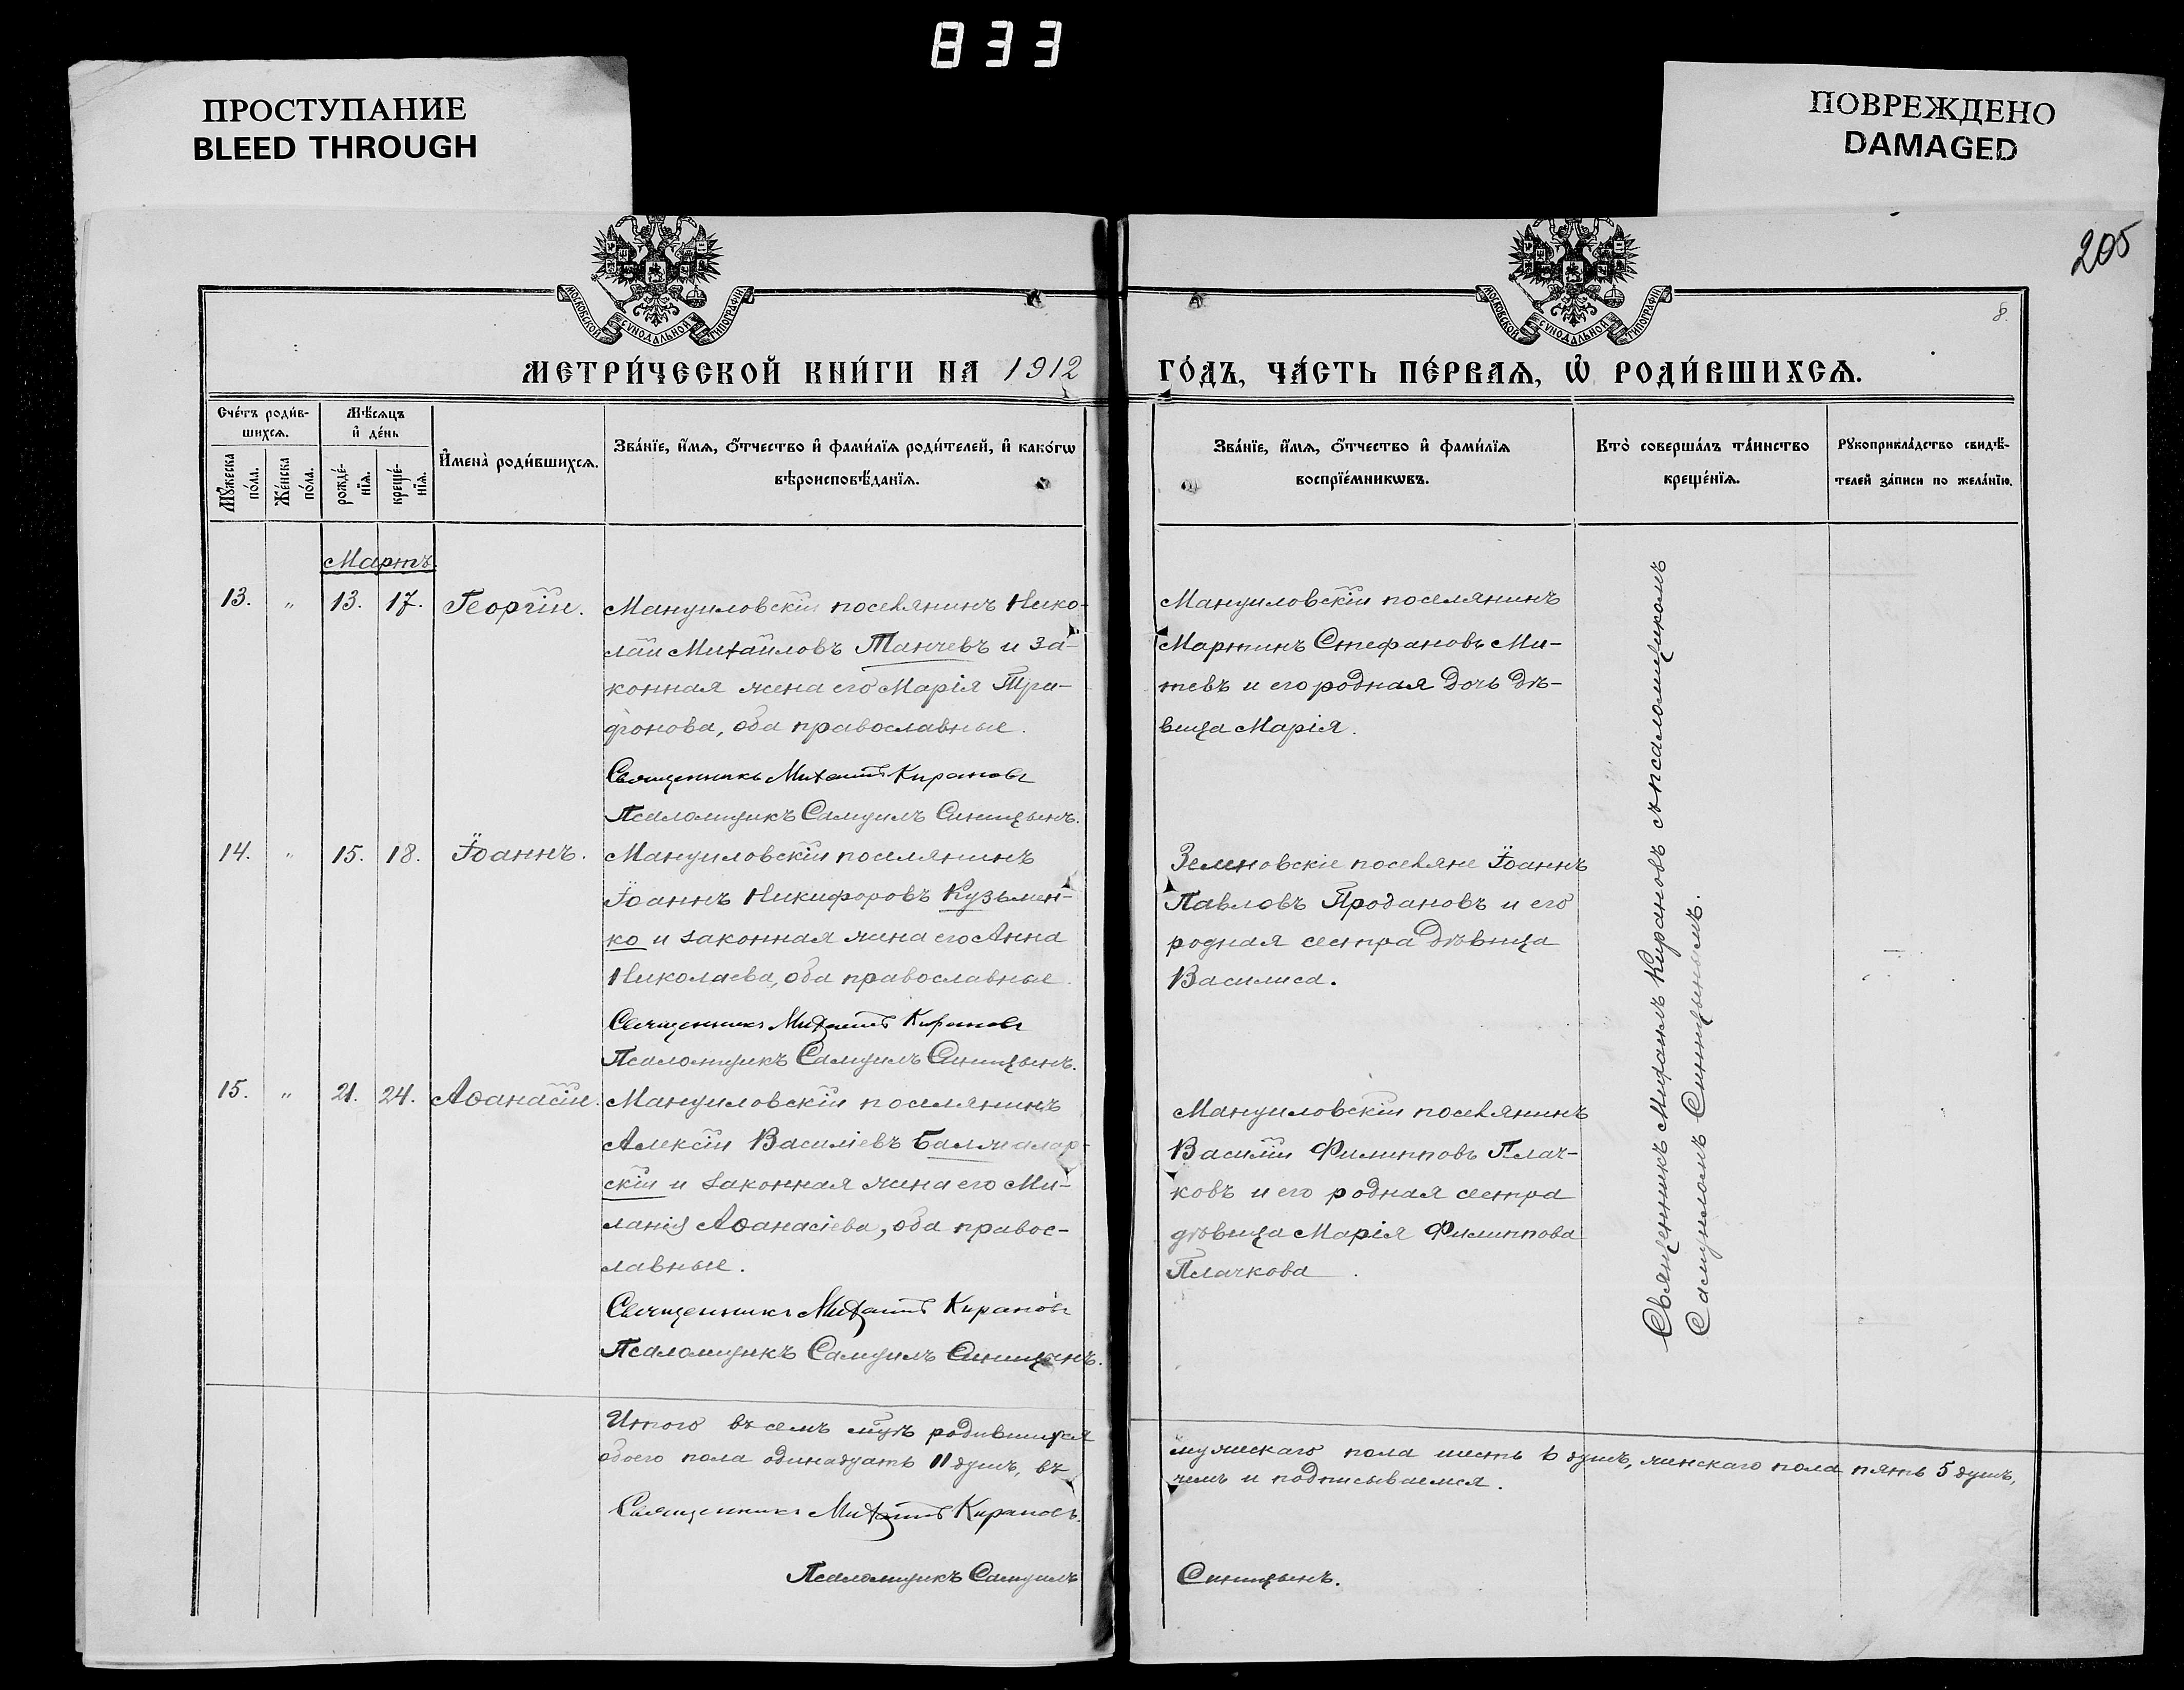 833
ПРОСТУПАНИЕ
BLEED THROUGH
ПОВРЕЖДЕНО
DAMAGED
205
МОСКОВСКОЙ СУНОДАЛЬНОЙ ТИПОГРАФІИ
МОСКОВСКОЙ СУНОДАЛЬНОЙ ТИПОГРАФІИ
8.
МЕТРИ́ЧЕСКОЙ КНИ́ГИ НА 1912
ГО́ДЪ, ЧА́СТЬ ПЕ́РВАѦ, Ѡ҆ РОДИ́ВШИХСѦ.
Сче́тъ роди́в-
шихсѧ.
Мꙋ́жеска
по́ла.
Же́нска
по́ла.
Мѣ́сѧцъ
и҆ де́нь
рожде́-
нїѧ.
креще́-
нїѧ.
И҆мена̀ роди́вшихсѧ.
Зва́нїе, и҆́мѧ, ѻ҆́тчество и҆ фами́лїѧ роди́телей, и҆ како́гѡ
вѣроисповѣ́данїѧ.
Зва́нїе, и҆́мѧ, ѻ҆́тчество и҆ фами́лїѧ
воспрїе́мникѡвъ.
Кто̀ соверша́лъ та́инство
креще́нїѧ.
Рꙋкоприкла́дство свидѣ́-
телей за́писи по жела́нїю.
Мартъ.
13. " 13. 17. Георгій.
Мануиловскій поселянинъ Нико-
лай Михайловъ Танчевъ и за-
конная жена его Марія Три-
фонова, оба православные.
Священникъ Михаилъ Кирановъ
Псаломщикъ Самуилъ Синицынъ.
Мануиловскій поселянинъ
Мартинъ Стефановъ Ми-
тевъ и его родная дочь дѣ-
вица Марія.
14. " 15. 18. Іоаннъ.
Мануиловскій поселянинъ
Іоаннъ Никифоровъ Кузьмен-
ко и законная жена его Анна
Николаева, оба православные.
Священникъ Михаилъ Кирановъ
Псаломщикъ Самуилъ Синицынъ.
Зеленовскіе поселяне Іоаннъ
Павловъ Продановъ и его
родная сестра дѣвица
Василиса.
15. " 21. 24. Аѳанасій.
Мануиловскій поселянинъ
Алексій Василіевъ Балжалар-
скій и законная жена его Ми-
ланія Аѳанасіева, оба правос-
лавные.
Священникъ Михаилъ Кирановъ
Псаломщикъ Самуилъ Синицынъ.
Мануиловскій поселянинъ
Василій Филипповъ Плач-
ковъ и его родная сестра
дѣвица Марія Филиппова
Плачкова.
Священникъ Михаилъ Кирановъ съ псаломщикомъ
Самуиломъ Синицынымъ.
Итого въ семъ родившихся
обоего пола одинадцать 11 душъ, въ
мужескаго пола шесть 6 душъ, женскаго пола пять 5 душъ,
чемъ и подписываемся.
Священникъ Михаилъ Кирановъ.
Псаломщикъ Самуилъ
Синицынъ.